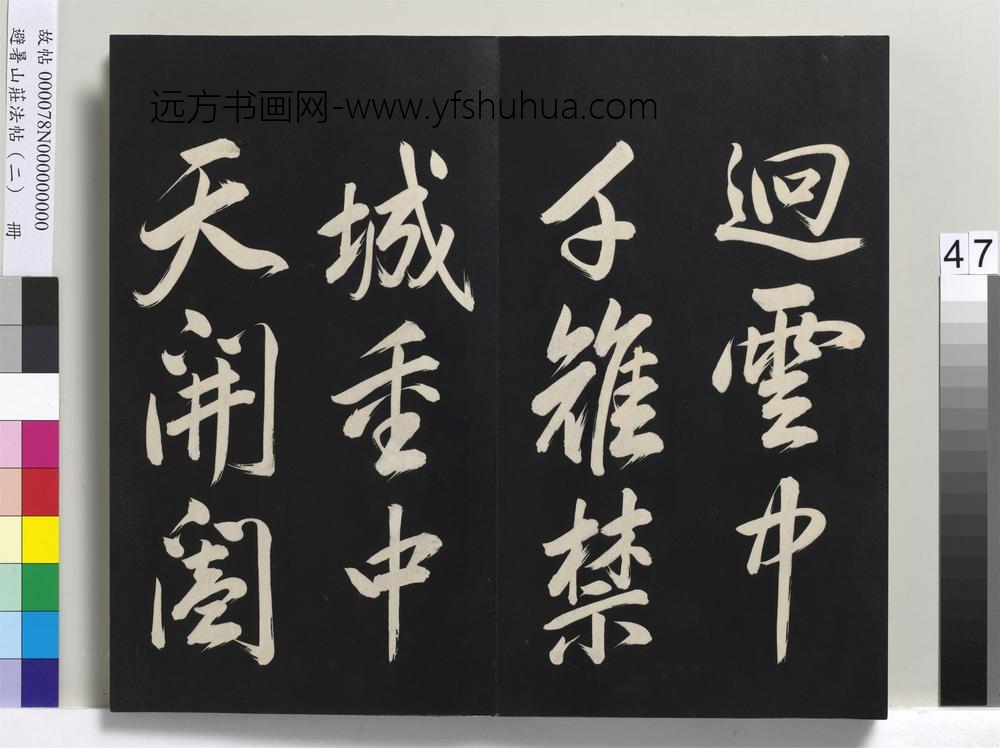 远方书画网-www.yfshuhua.com
迥雲中
千雉禁
城重中
天開閶
故帖 000078N000000000
避暑山莊法帖（二） 冊
47